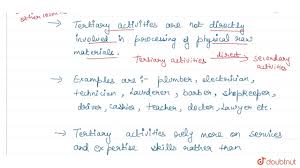 other
→ Tertiary activities are not directly
involved in processing of physical raw
materials.
Tertiary activities direct→ secondary
activities
→ Examples are :- plumber, electrician,
technician, launderer, barber, shopkeeper,
driver, cashier, teacher, doctor, lawyer etc.
→ Tertiary activities rely more on services
and expertise skills rather than
doubtnut